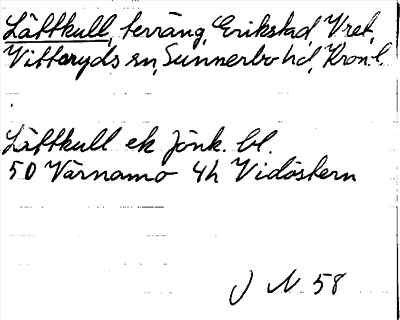 Lättkull, terräng, Erikstad Vret,
Vittaryds sn, Sunnerbo hd, Kron.l.
Lättkull ek Jönk. bl.
50 Värnamo 4h Vidöstern
J N 58